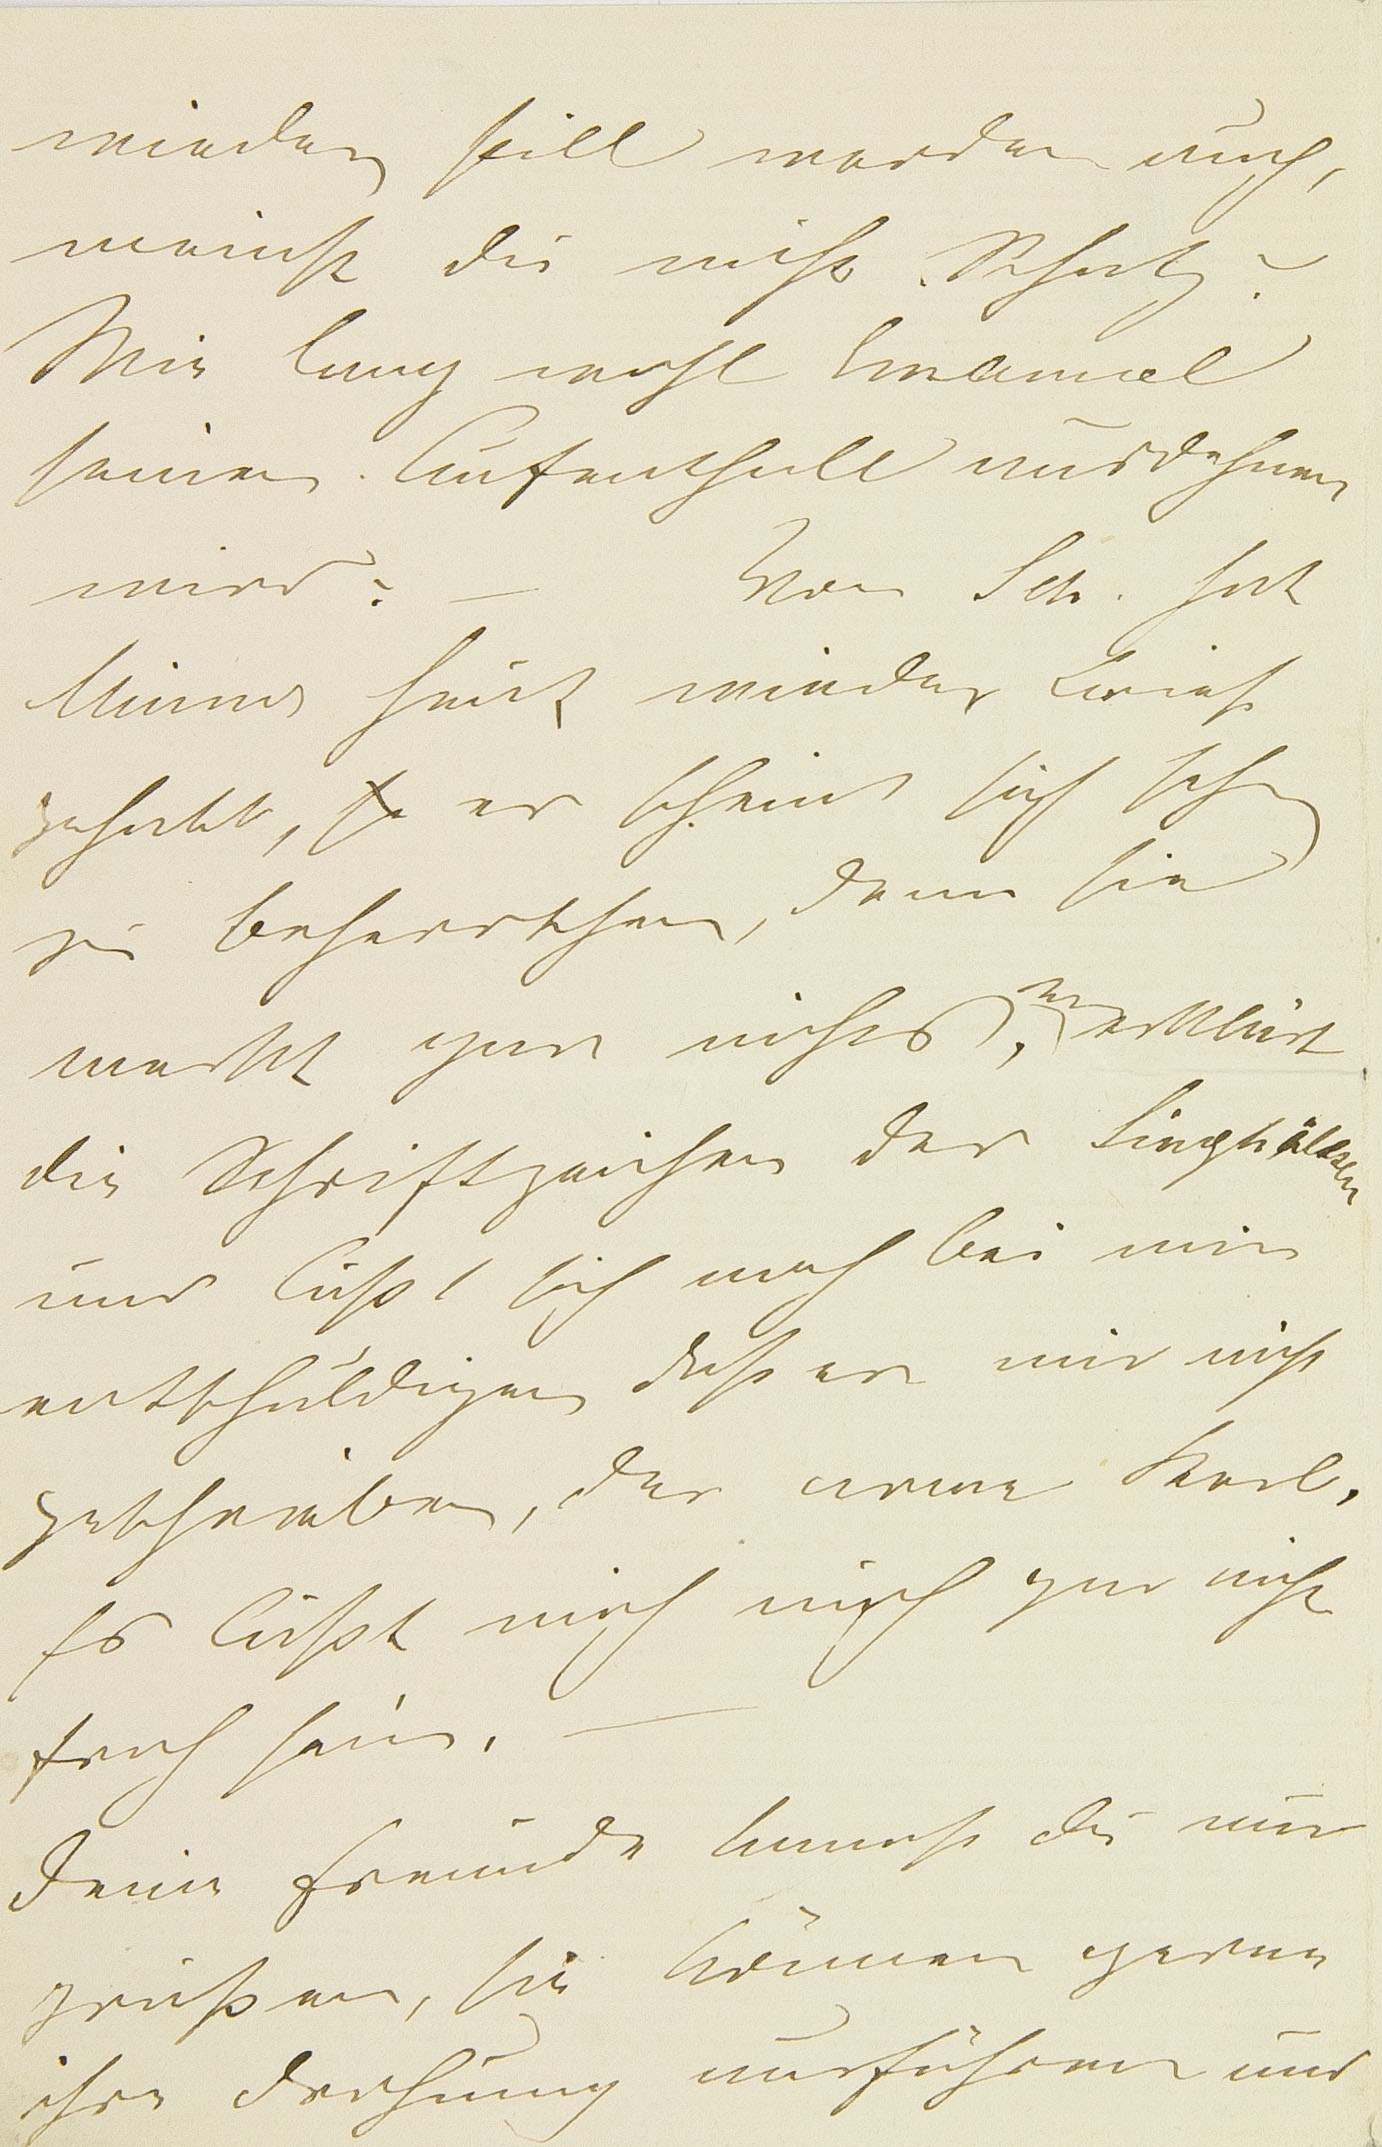 wieder still werden auch,
meinst du nicht Schatz? –
Wie lang wohl Emanuel
seinen Aufenthalt ausdehnen
wird? – Von Sch. hat
Minna heut wieder Brief
gehabt, er scheint sich sehr
zu beherrschen, denn sie
merkt gar nichts, er erklärt
die Schriftzeichen der Singhalesen
und läßt sich noch bei mir
entschuldigen daß er mir nicht
geschrieben, der arme Kerl,
es läßt mich auch gar nicht
froh sein. –
Deine Freunde kannst du nur
grüßen, sie können gerne
ihre Drohung ausführen und